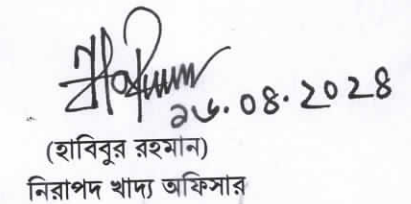 ২৬.০৪.২০২৪
(হাবিবুর রহমান)
নিরাপদ খাদ্য অফিসার